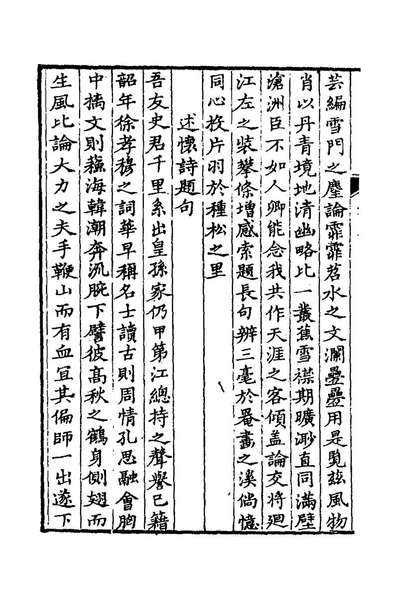 芸編雪門之麈論霏霏苕水之文瀾疊疊用是覧兹風物
肖以丹青境地清幽略比一叢蕉雪襟期曠渺直同滿壁
滄洲臣不如人卿能念我共作天涯之客傾盖論交將廻
江左之裝攀條增感索題長句辦三毫於罨畫之溪倘憶
同心校片羽於種松之里
述懷詩題句
吾友史君千里系出皇孫家仍甲第江總持之聲譽已籍
韶年徐孝穆之詞華早稱名士讀古則周情孔思融會胸
中摛文則蘇海韓潮奔流腕下譬彼髙秋之鶴身側翅而
生風比論大力之夫手鞭山而有血宜其偏師一出遂下